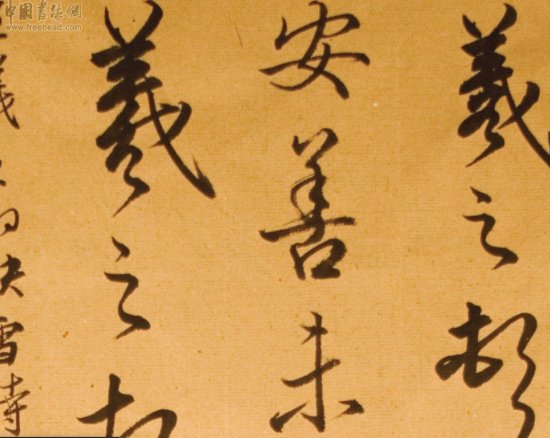 中國書法網
www.freehead.com
羲之頓
安善未
羲之
羲之的快雪時